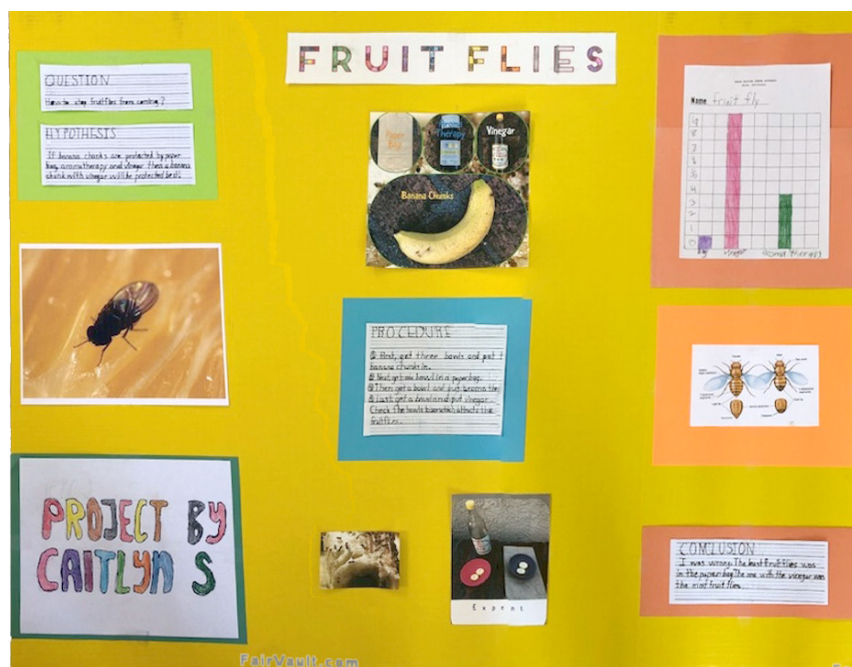 FRUIT FLIES
QUESTION
How to stop fruitflies from coming?
HYPOTHESIS
If banana chunks are protected by paper
bag, aromatherapy and vinegar then a banana
chunk with vinegar will be protected best.
Paper
Bag
Therapy
Vinegar
Banana Chunks
PROCEDURE
First, get three bowls and put 1
banana chunk in.
Next get one bowl in a paper bag.
Then get a bowl and put aroma the
Last get a bowl and put vinegar.
Check the bowls to see which attracts the
fruitflies.
PROJECT BY
CAITLYN S
Name fruit fly
9
8
7
6
5
4
3
2
1
0
vinegar
CONCLUSION
I was wrong. The least fruit flies was
in the paper bag. The one with the vinegar was
the most fruit flies.
FairVault.com